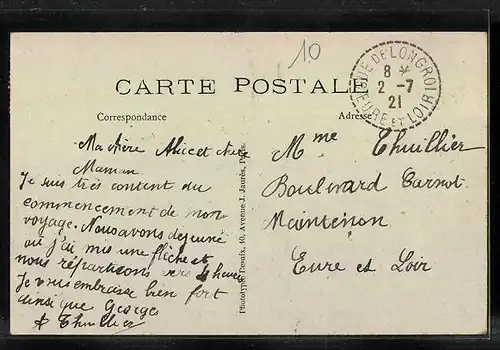 10
CARTE POSTALE
Correspondance
Adresse
RUE DE LONGROI
8 *
2 -7
21
EURE ET LOIR
Ma chère Alice et
Maman
Je suis très content du
commencement de mon
voyage. Nous avons déjeuné
où j'ai mis une flèche et
nous repartirons vers 4 heures
Je vous embrasse bien fort
ainsi que Georges
A Thuillier
Phototypie Dœufx, 10, Avenue J. Jaurès, Paris.
Mme Thuillier
Boulevard Carnot
Maintenon
Eure et Loir